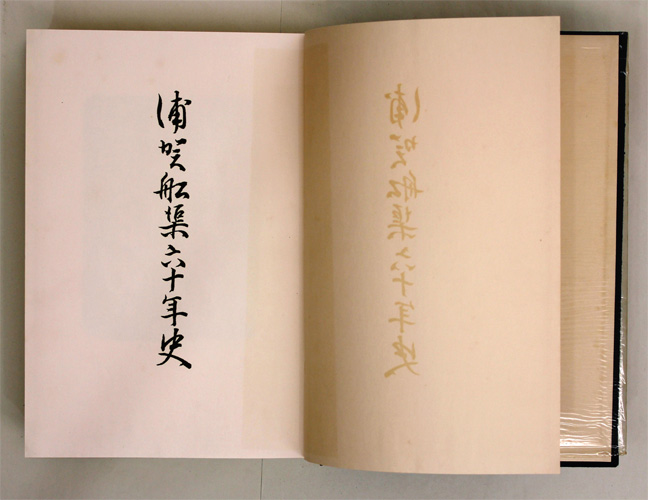 浦賀船渠六十年史